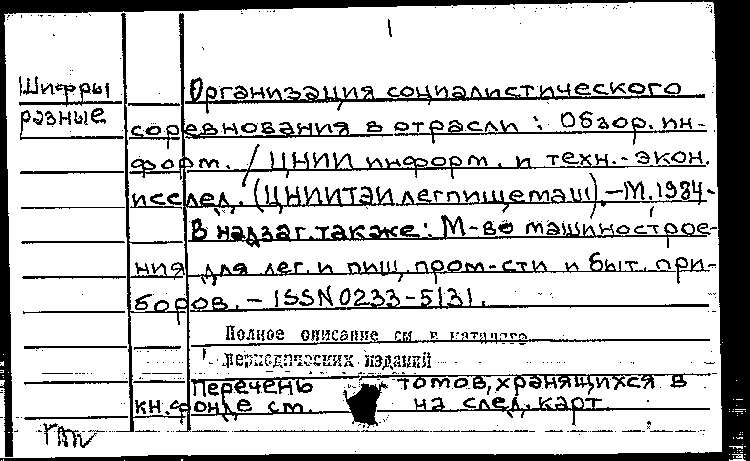 1
Шифры
разные
Организация социалистического
соревнования в отрасли : Обзор. ин-
форм. / ЦНИИ информ. и техн.-экон.
исслед. (ЦНИИТЭИлегпищемаш).-М.1984-
В надзаг. также: М-во машинострое-
ния для лег. и пищ. пром-сти и быт. при-
боров. - ISSN 0233-5131.
Полное описание см. в каталоге
периодических изданий
Перечень томов, хранящихся в
кн. фонде см. на след. карт.